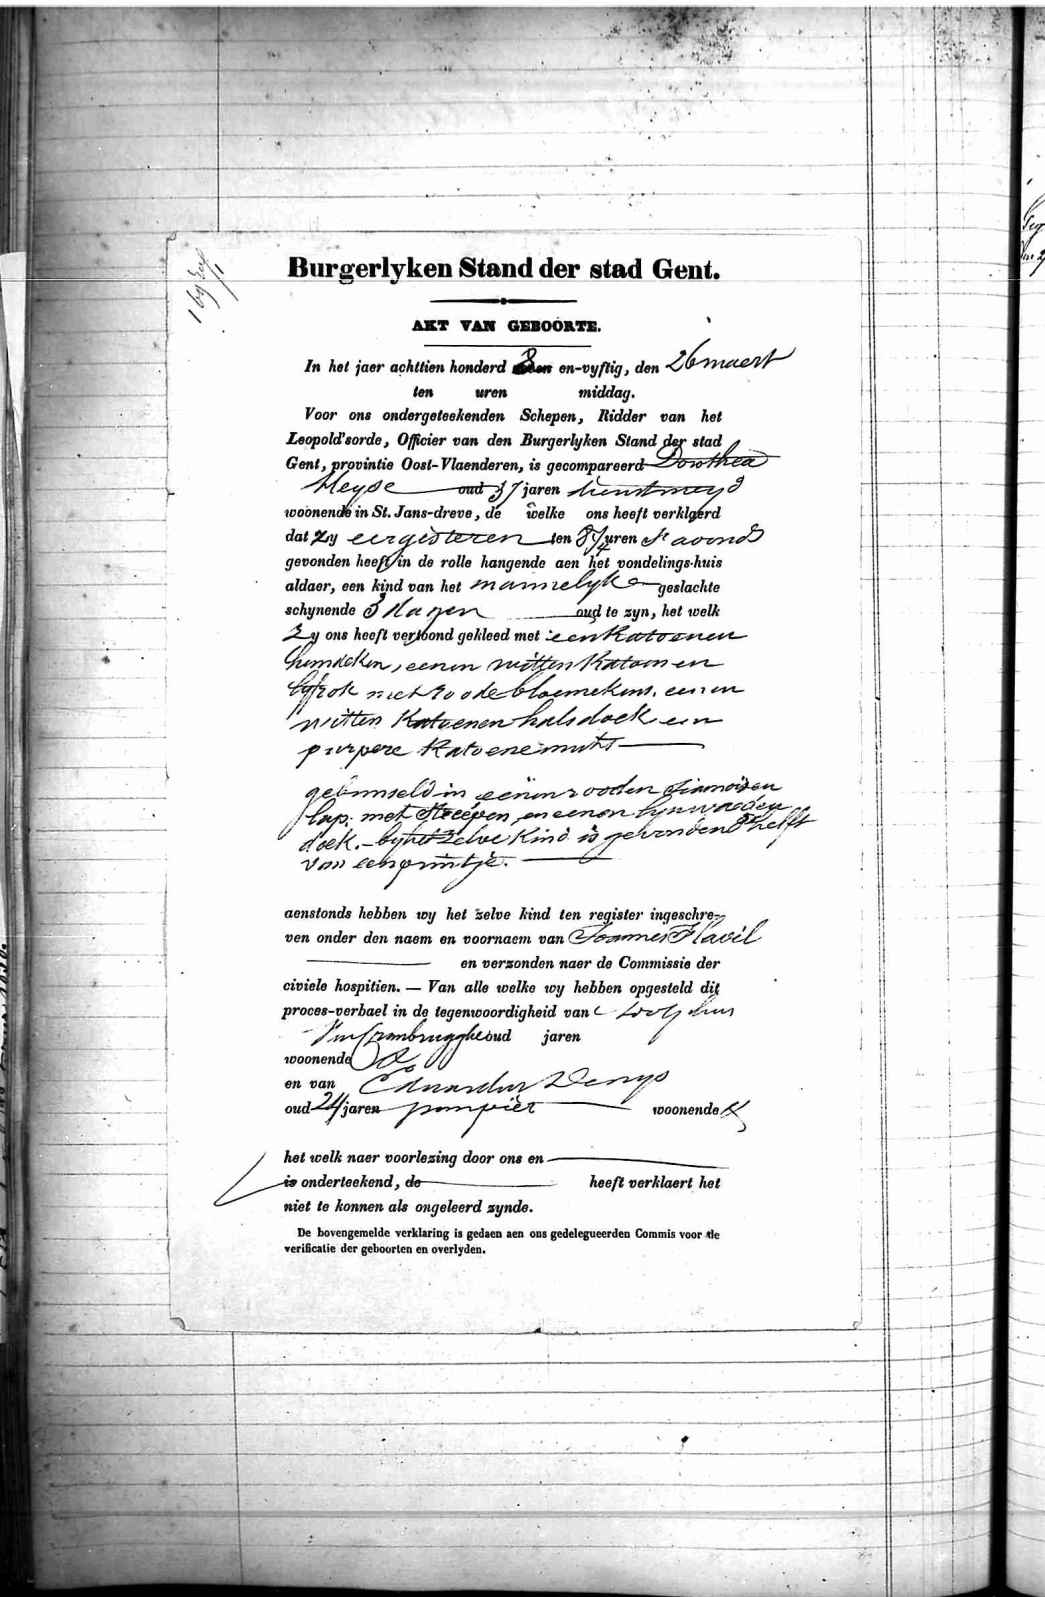 1 bylage
Burgerlyken Stand der stad Gent.
AKT VAN GEBOORTE.
In het jaer achttien honderd 8 en-vyftig, den 26 maert
ten uren middag.
Voor ons ondergeteekenden Schepen, Ridder van het
Leopold'sorde, Officier van den Burgerlyken Stand der stad
Gent, provintie Oost-Vlaenderen, is gecompareerd Dorothea
Heyse oud 37 jaren dienstmeyd
woonende in St. Jans-dreve, de welke ons heeft verklaerd
dat zy eergisteren ten 8 1/4 uren s'avonds
gevonden heeft in de rolle hangende aen het vondelings-huis
aldaer, een kind van het mannelyke geslachte
schynende 3 dagen oud te zyn, het welk
Zy ons heeft vertoond gekleed met een katoenen
hemdeken, eenen witten katoenen
lyfrok met roode bloemekens, eenen
witten katoenen halsdoek een
purpere katoene muts
gebunseld in eenen rooden siamoisen
lap met streépen, en eenen lynwaeden
doek. – by het zelve kind is gevonden d'helft
van een printje.
aenstonds hebben wy het zelve kind ten register ingeschre-
ven onder den naem en voornaem van Joannes Flavil
en verzonden naer de Commissie der
civiele hospitien. — Van alle welke wy hebben opgesteld dit
proces-verbael in de tegenwoordigheid van
Van Crombrugghe oud jaren
woonende
en van Eduardus Denys
oud 24 jaren pompier woonende
het welk naer voorlezing door ons en
is onderteekend, de heeft verklaert het
niet te konnen als ongeleerd zynde.
De bovengemelde verklaring is gedaen aen ons gedelegueerden Commis voor de
verificatie der geboorten en overlyden.